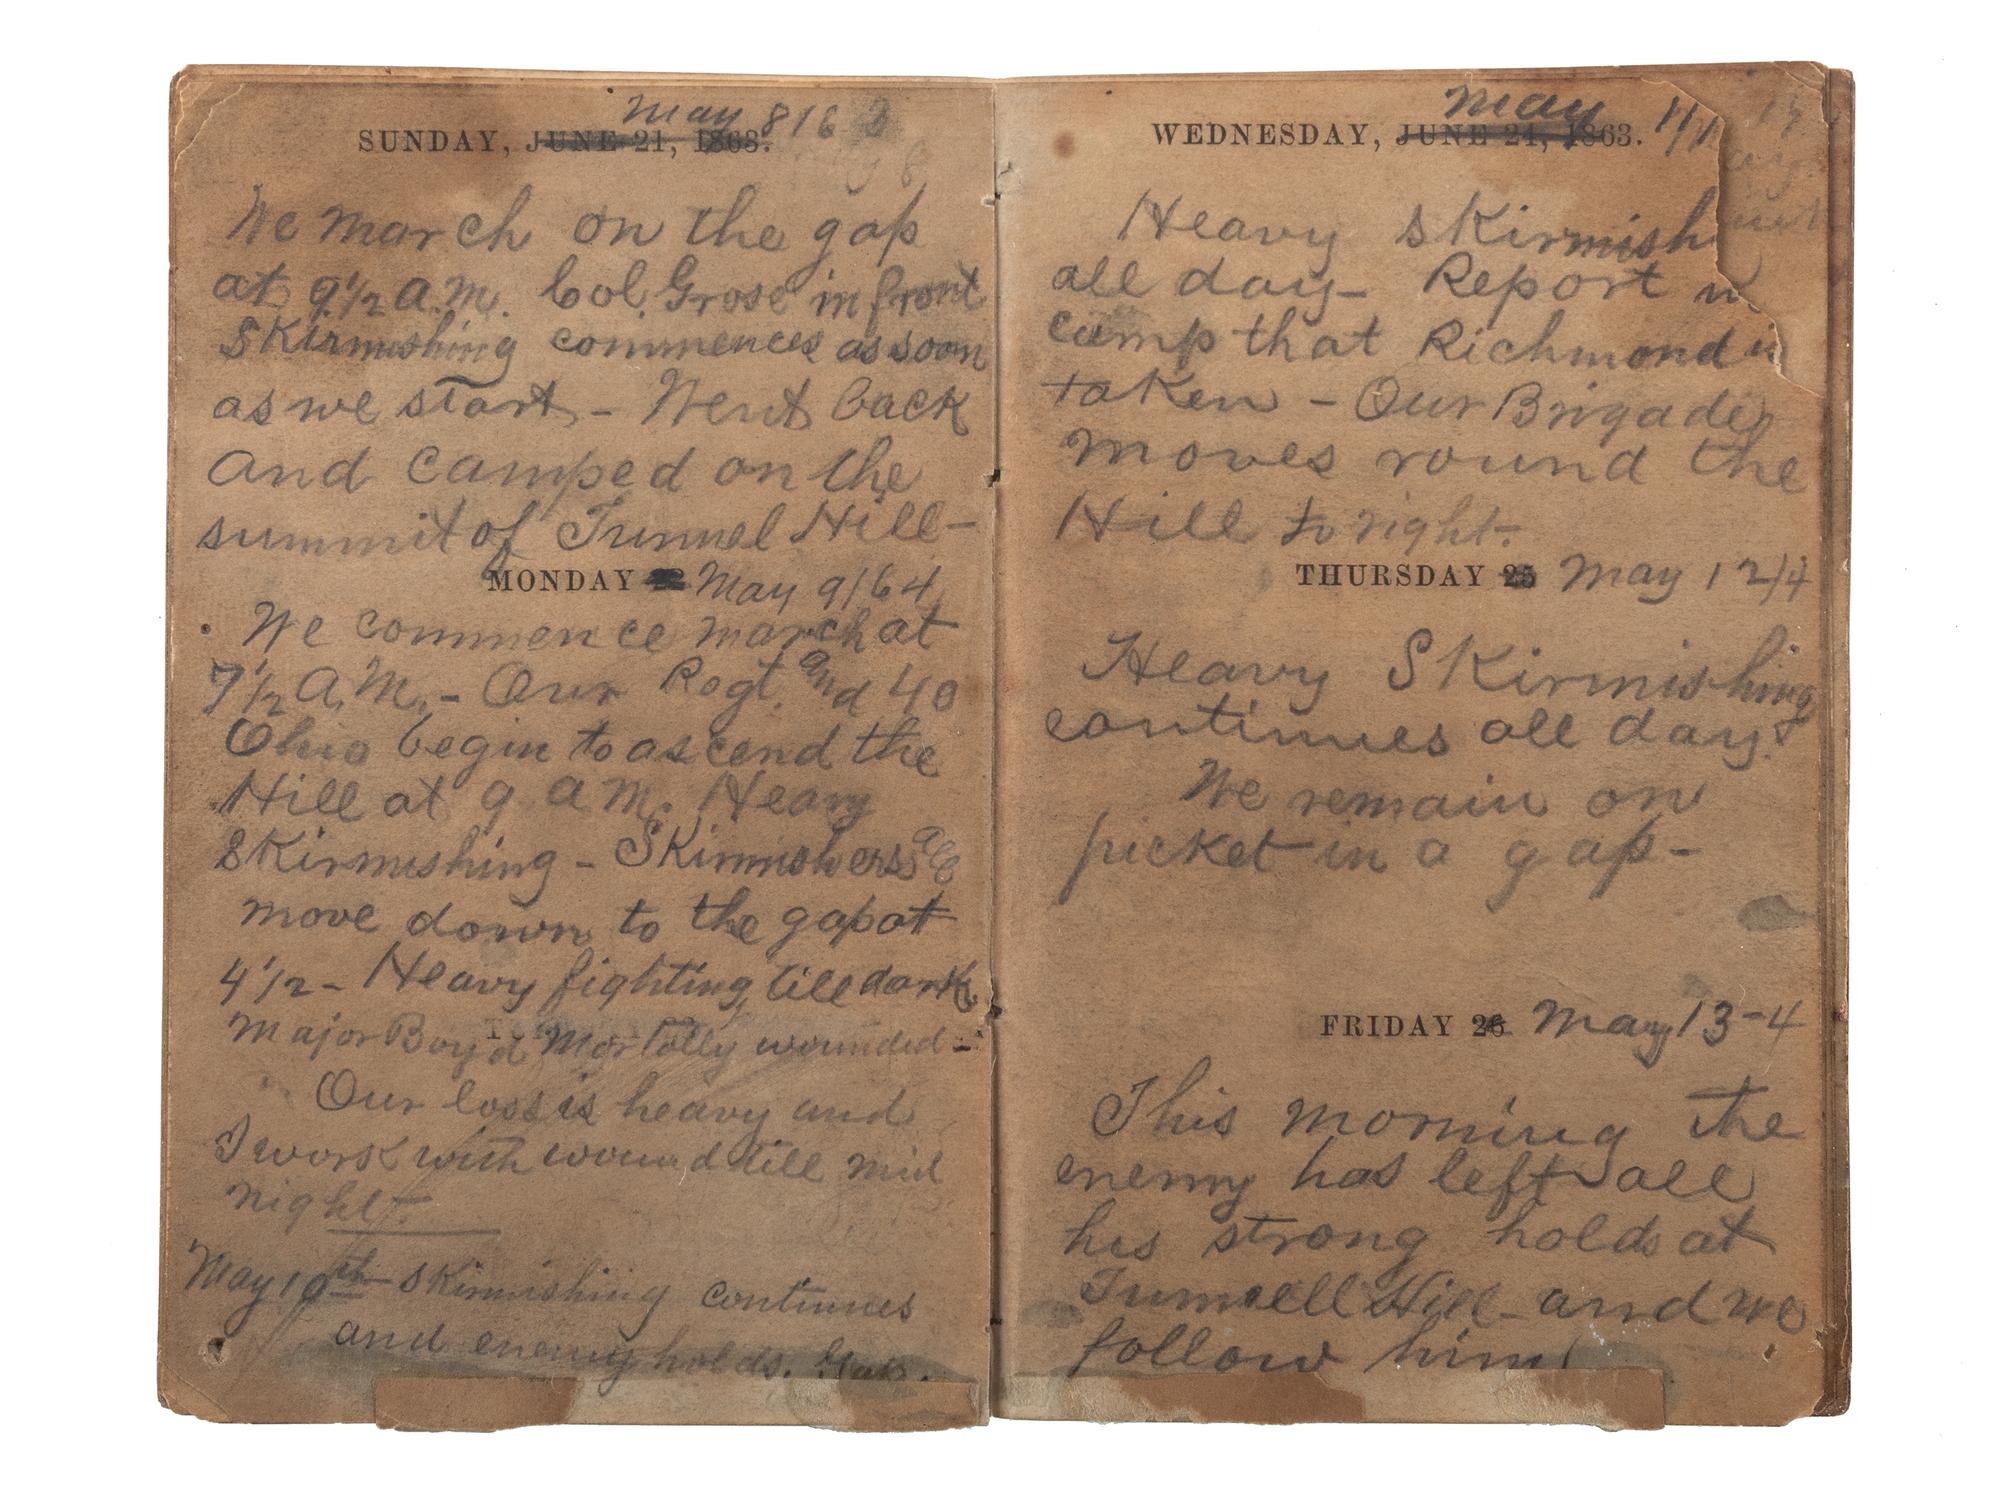 SUNDAY, JUNE 21, 1863. May 8 / 6
We march on the gap
at 9 1/2 a.m. Col. Grose in front
Skirmishing commences as soon
as we start - Went back
and camped on the
summit of Tunnel Hill -
MONDAY May 9/64
We commence march at
7 1/2 A.M. - Our Regt. and 40
Ohio begin to ascend the
Hill at 9 a M. Heavy
Skirmishing - Skirmishers all
move down to the gap at
4 1/2 - Heavy fighting till dark.
Major Boyd Mortally wounded -
Our loss is heavy and
I work with wound till mid
night.
May 10th Skirmishing continues
and enemy holds. Gap.
WEDNESDAY, JUNE 24, 1863. May 11/
Heavy Skirmish
all day - Report
camp that Richmond
taken - Our Brigade
moves round the
Hill to right.
THURSDAY 25 May 12/4
Heavy Skirmishing
continues all day.
We remain on
picket in a gap -
FRIDAY 26 May 13-4
This morning the
enemy has left all
his strong holds at
Tunnell Hill - and we
follow him